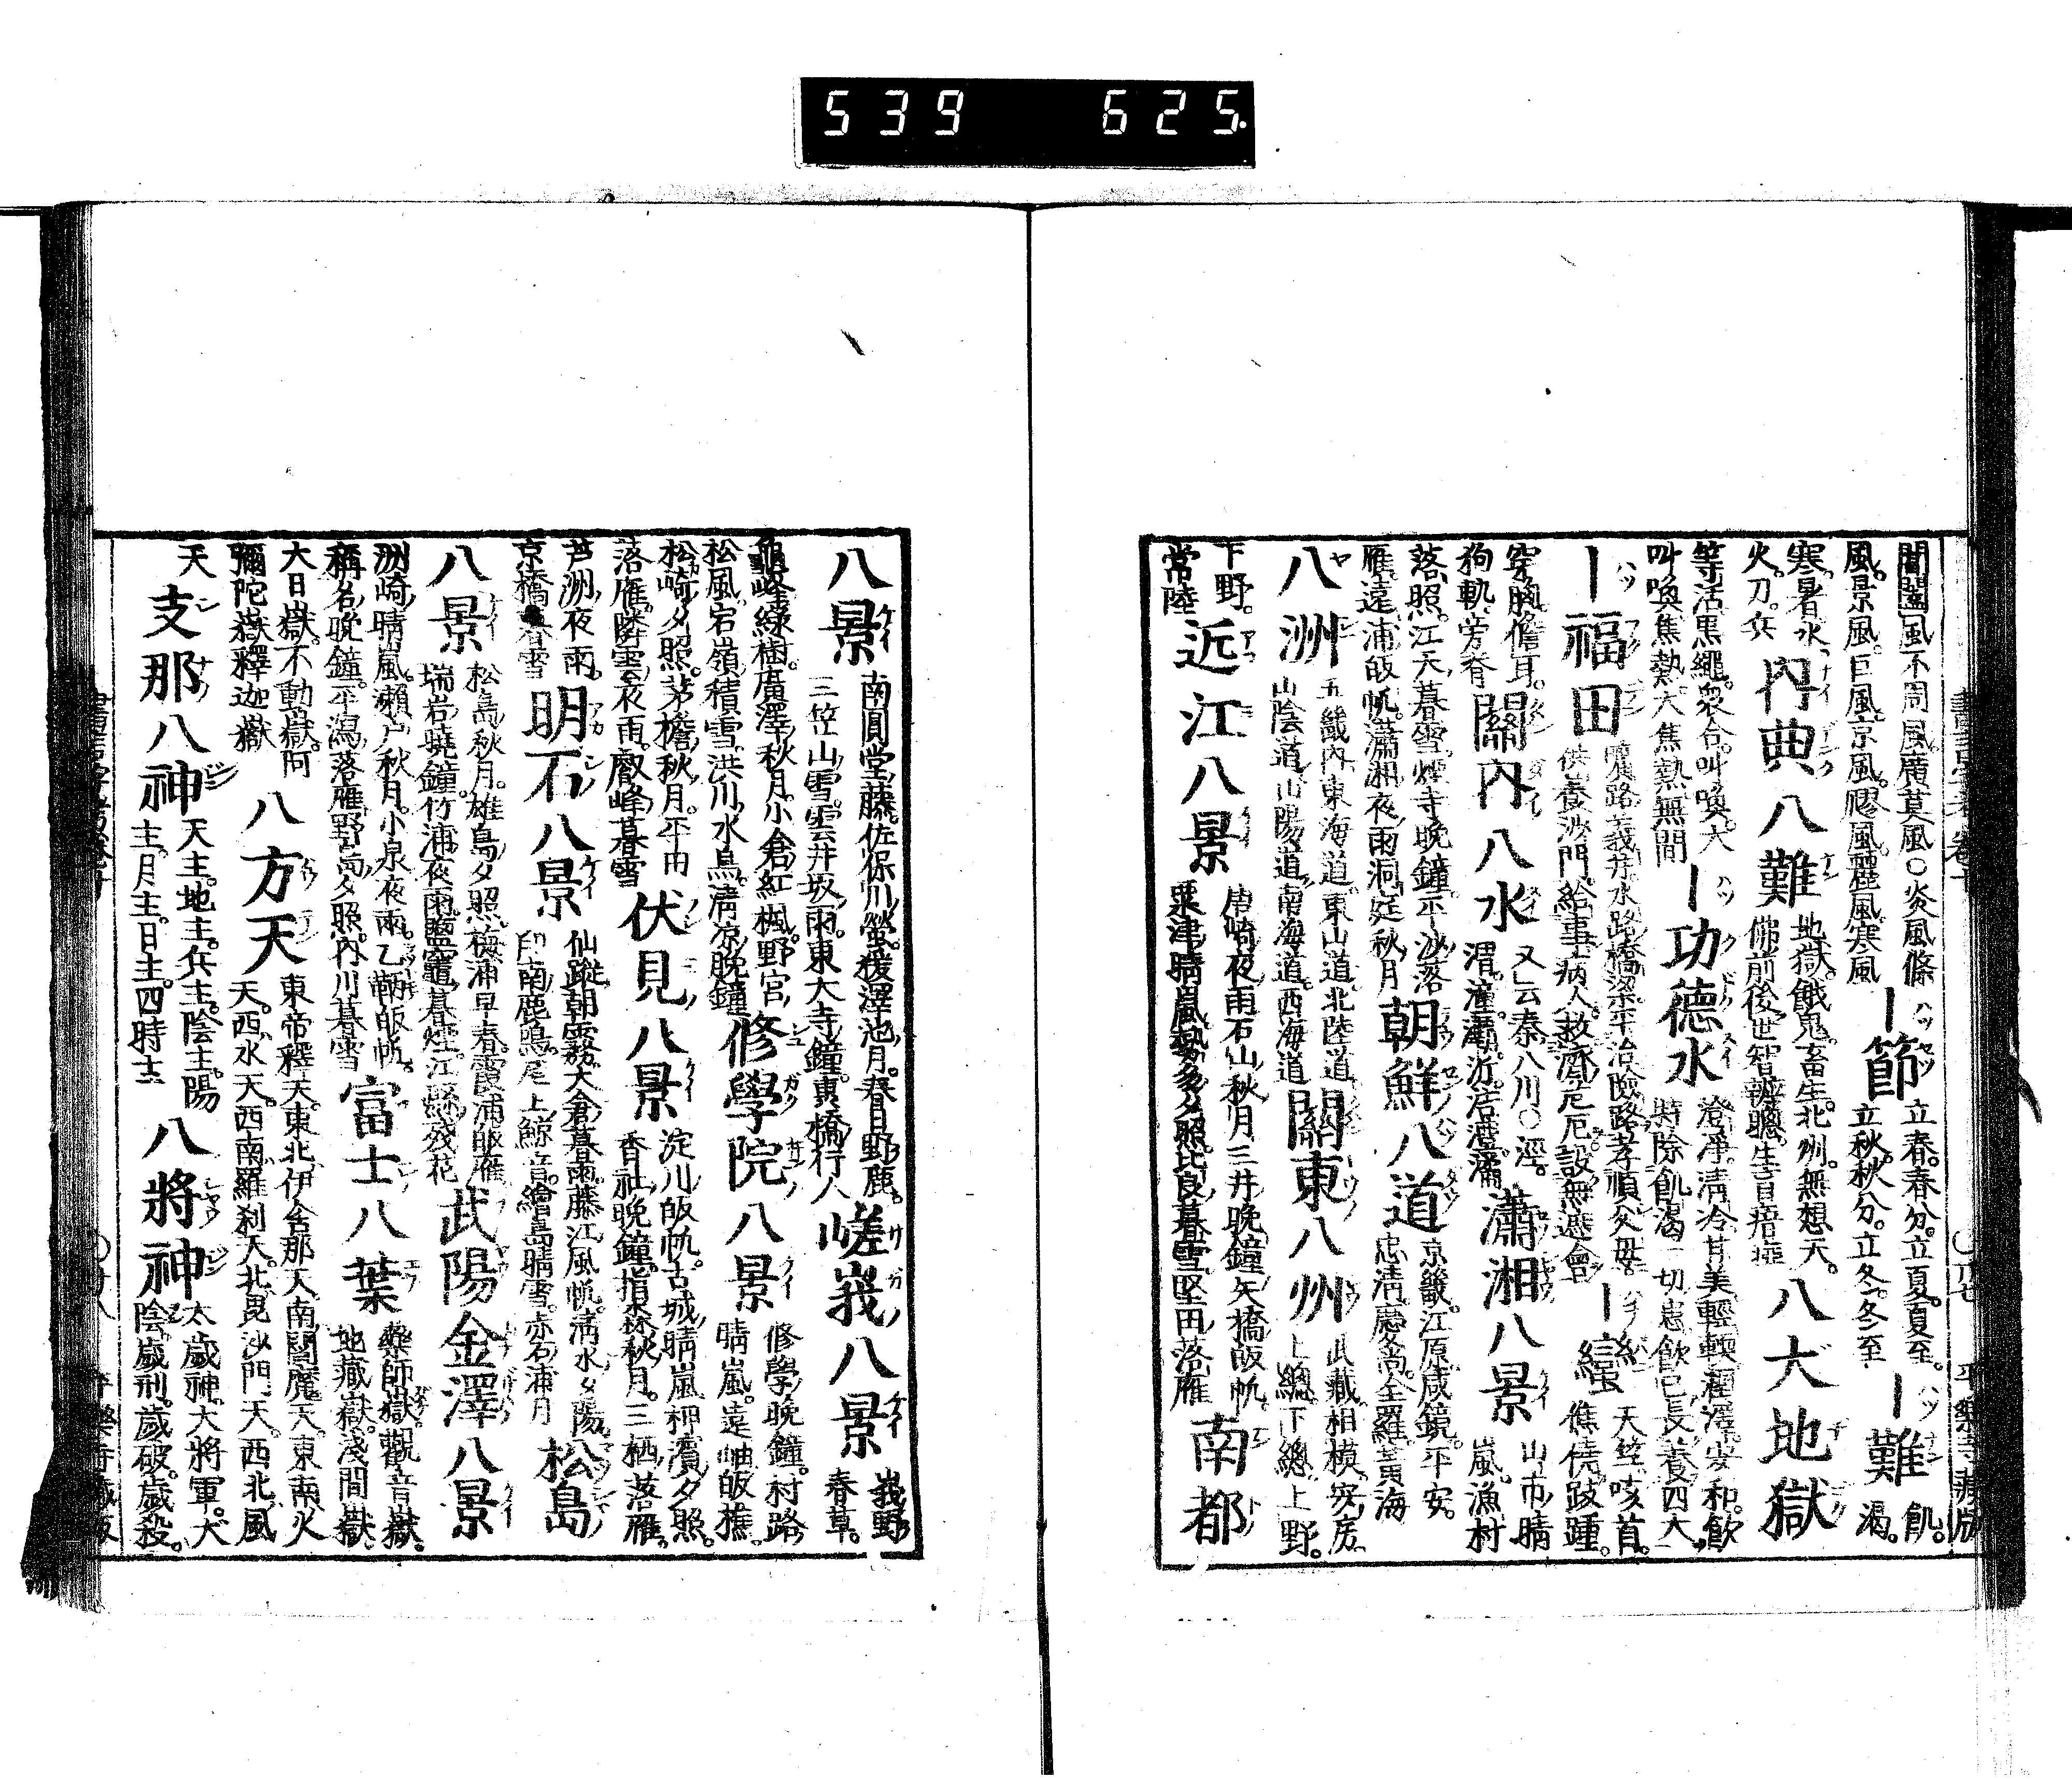 539 625
閶闔風不周風廣莫風○炎風條
風景風巨風京風膠風麗風寒風
―節
立春春分立夏夏至
立秋秋分立冬冬至
―難
飢渴
寒暑水
火刀兵
內典八難
地獄餓鬼畜生北州無想天
佛前後世智辯聰生盲瘖瘂
八大地獄
等活黑繩衆合叫喚大
叫喚焦熱大焦熱無間
―功德水
澄淨清冷甘美輕輭潤澤安和飲
時除飢渴一切患飲已長養四大
―福田
曠路義井水路橋梁平治險路孝順父母
供養沙門給事病人救濟危厄設無遮會
―蠻
天竺咳首
僬僥跛踵
穿胸儋耳
狗軌旁脊
關內八水
又云秦八川○涇
渭
瀟湘八景
山市晴
嵐漁村
落照江天暮雪煙寺晚鐘平沙落
雁遠浦皈帆瀟湘夜雨洞庭秋月
朝鮮八道
京畿江原咸鏡平安
忠淸慶尚全羅黃海
八洲
五畿內東海道東山道北陸道
山陰道山陽道南海道西海道
關東八州
武藏相模安房
上總下總上野
下野
常陸
近江八景
唐崎夜雨石山秋月三井晚鐘矢橋皈帆
粟津晴嵐勢多夕照比良暮雪堅田落雁
南都
八景
南圓堂藤佐保川螢猿澤池月春日野鹿
三笠山雪雲井坂雨東大寺鐘轟橋行人
嵯峩八景
峩野
春草
龜峰綠樹廣澤秋月小倉紅楓野宮
松風宕嶺積雪洪川水鳥淸凉晚鐘
修學院八景
修學晚鐘村路
晴嵐遠岫皈樵
松崎夕照茅檐秋月平田
落雁隣雲夜雨叡峰暮雪
伏見八景
淀川皈帆古城晴嵐柙濱夕照
香社晚鐘指森秋月三栖落雁
芦洲夜雨
京橋暮雪
明石八景
仙蹤朝霧大倉暮雨藤江風帆淸水夕陽
印南鹿鳴尾上鯨音繪島晴雪赤石浦月
松島
八景
松島秋月雄島夕照梅浦早春霞浦皈雁
瑞岩曉鐘竹浦夜雨鹽竈暮煙江縣殘花
武陽金澤八景
洲崎晴嵐瀨戶秋月小泉夜雨乙鞆皈帆
稱名晚鐘平瀉落雁野島夕照內川暮雪
富士八葉
藥師嶽觀音嶽
地藏嶽淺間嶽
大日嶽不動嶽阿
彌陀嶽釋迦嶽
八方天
東帝釋天東北伊舍那天南閻魔天東南火
天西水天西南羅刹天北毘沙門天西北風
天
支那八神
天主地主兵主陰主陽
主月主日主四時主
八將神
太歲神大將軍大
陰歲刑歲破歲殺